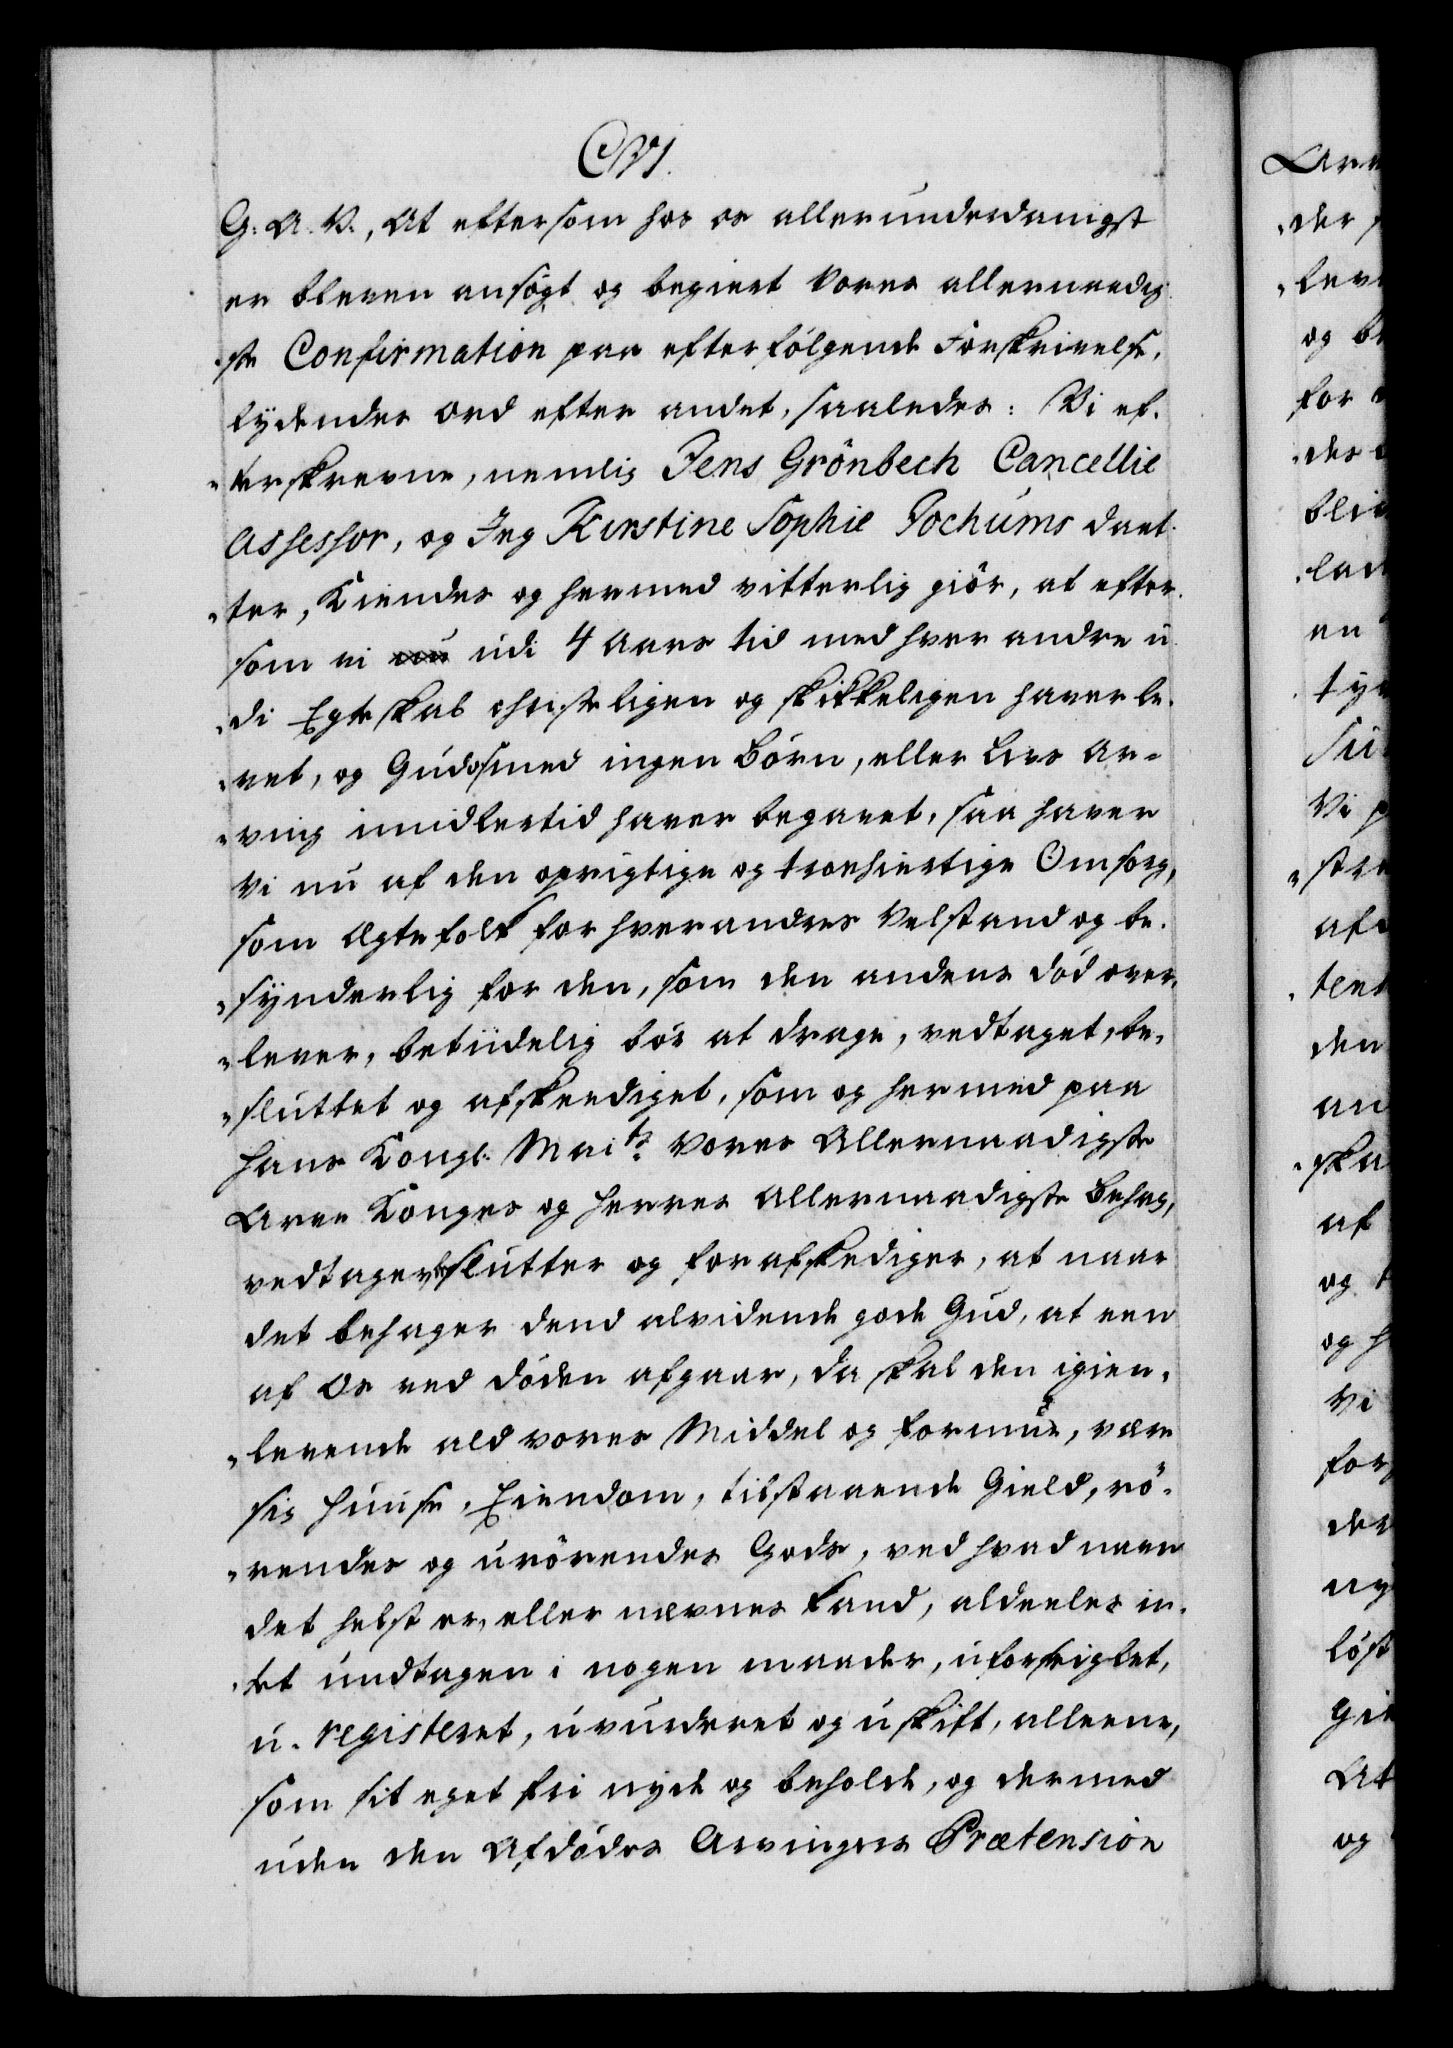 CVI.
G. A. V., At eftersom hos os allerunderdanigst
er bleven ansögt og begiert Vores allernaadig-
„ste Confirmation paa efterfölgende Forskrivelse,
lydendes Ord efter andet, saaledes: Vi ef-
„terskrevne, nemlig Jens Grönbech Cancellie
Assessor, og Jeg Kirstine Sophie Jochums Daat-
„ter, Kiendes og hermed vitterlig giör, at efter-
som vi udi 4 Aars tid med hver andre u-
„di Egteskab christeligen og skikkeligen haver le-
„vet, og Gud os med ingen Börn, eller Livs Ar-
„ving imidlertid haver begavet, saa haver
Vi nu af den oprigtige og troehiertige Omsorg,
som Ægtefolk for hverandres Velstand og be-
„synderlig for den, som den andens Död over-
„lever, betiidelig bör at drage, vedtaget, be-
„sluttet og afskeediget, som og hermed paa
Hans Kongl. Mai:ts Vores Allernaadigste
Arve Konges og Herres Allernaadigste Behag,
vedtager, beslutter og forafskediger, at naar
det behager dend alvidende gode Gud, at een
af Os ved Döden afgaar, da skal den igien-
„levende ald vores Middel og Formue, være
sig Huuse, Eiendom, tilstaaende Gield, rö-
„rendes og urörendes Gods, ved hvad navn
det helst er, eller nævnes kand, aldeeles in-
„tet undtagen i nogen maader, uforseiglet,
u-registeret, uvurderet og uskift, alleene,
som sit eget frii nyde og beholde, og dermed
uden den Afdödes Arvingers Prætension